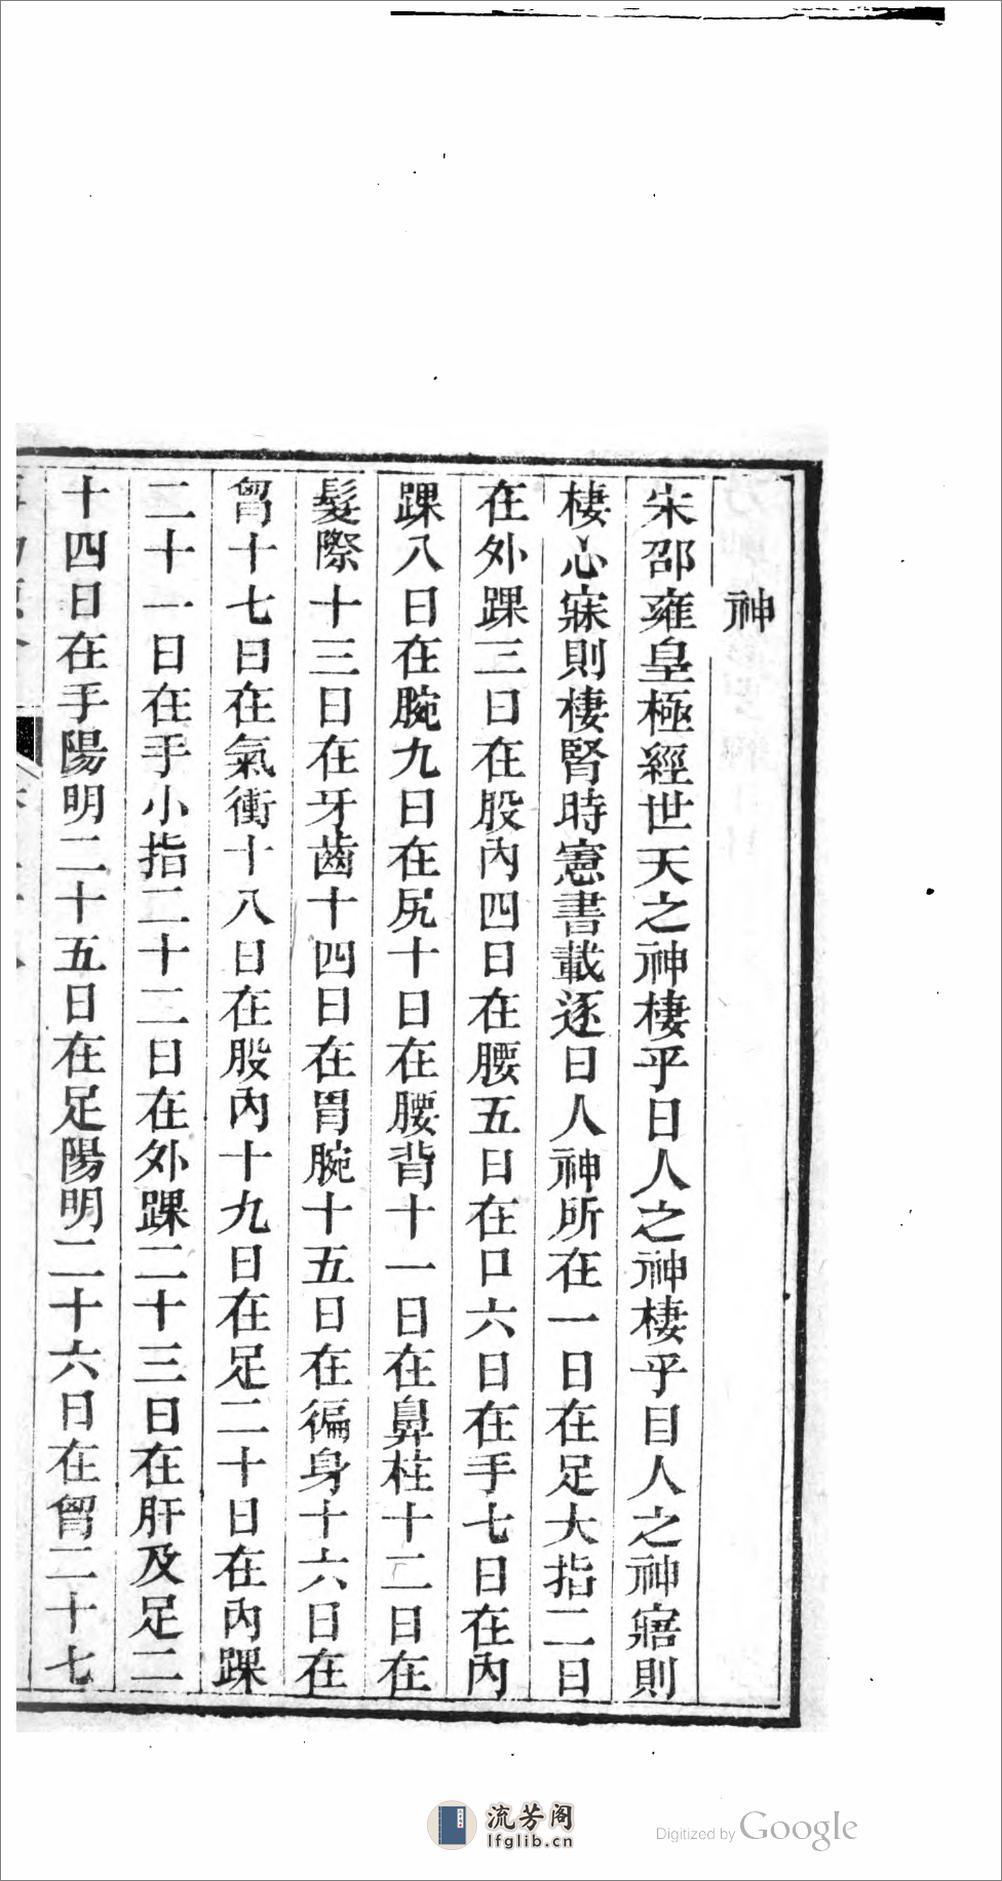 神
宋邵雍皇極經世天之神棲乎日人之神棲乎目人之神寤則
棲心寐則棲腎時憲書載逐日人神所在一日在足大指二日
在外踝三日在股內四日在腰五日在口六日在手七日在內
踝八日在腕九日在尻十日在腰背十一日在鼻柱十二日在
髮際十三日在牙齒十四日在胃腕十五日在徧身十六日在
胷十七日在氣衝十八日在股內十九日在足二十日在內踝
二十一日在手小指二十二日在外踝二十三日在肝及足二
十四日在手陽明二十五日在足陽明二十六日在胷二十七
流芳阁
lfglib.cn
Digitized by Google